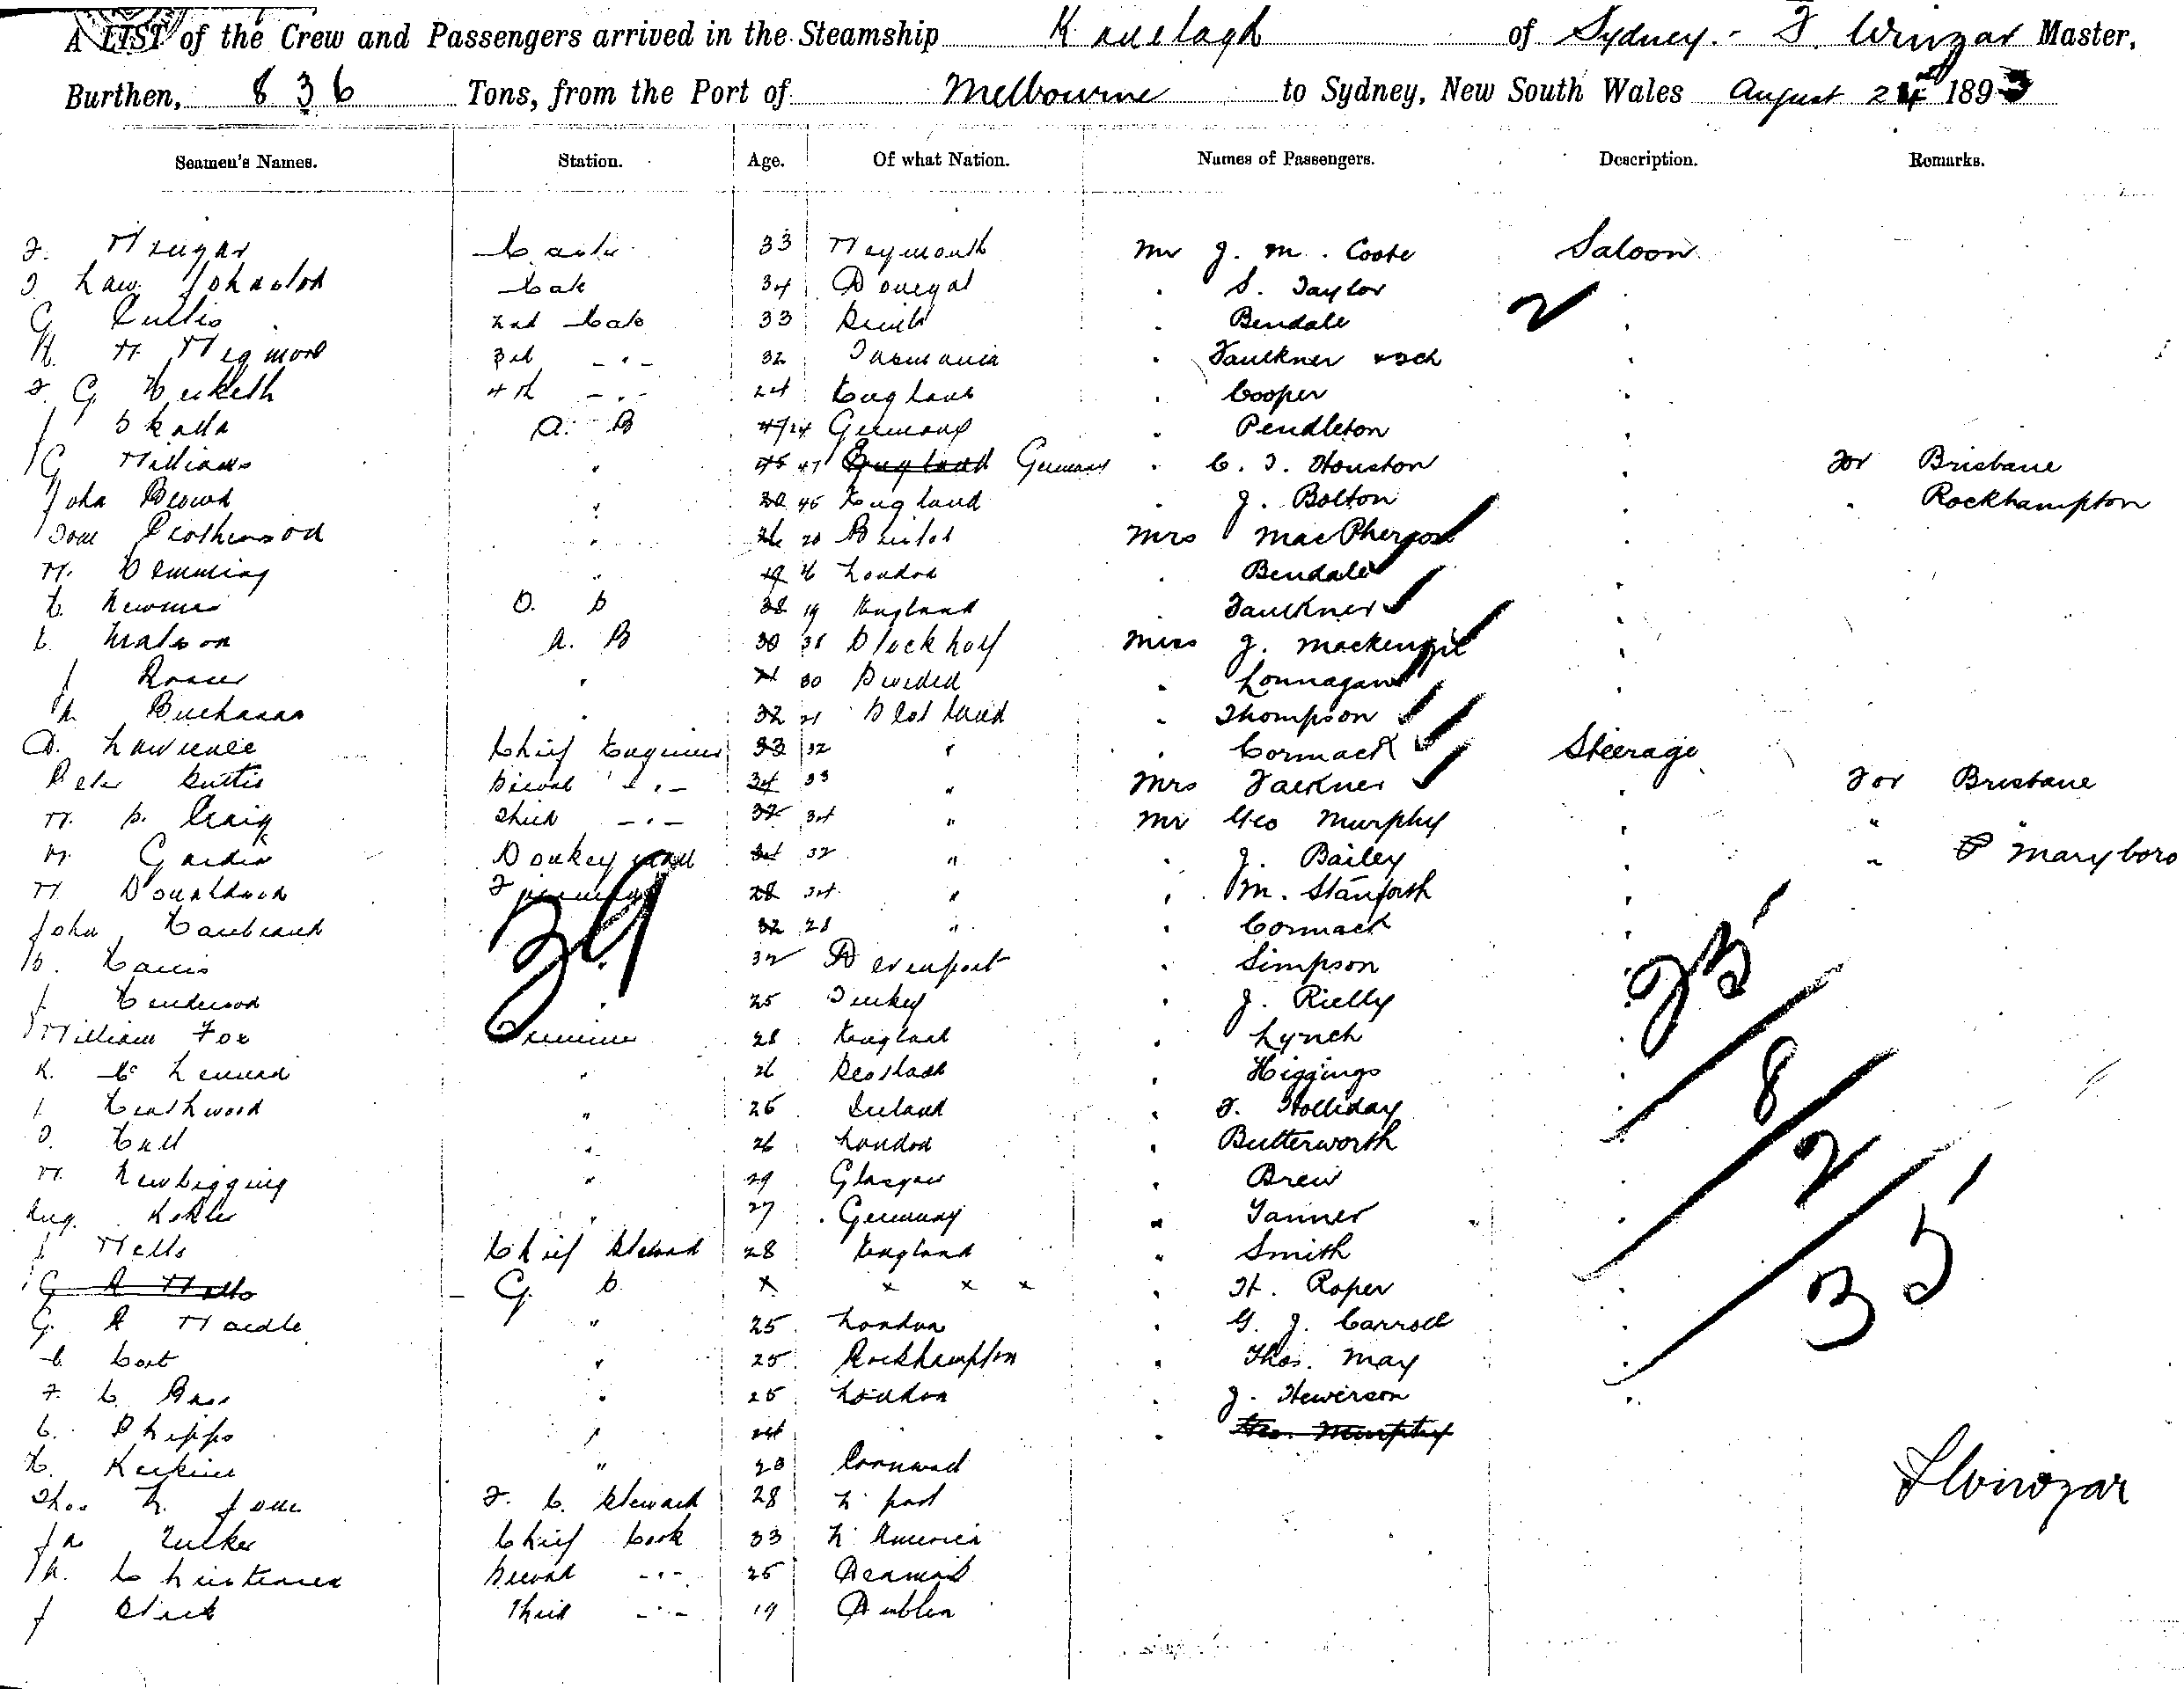 A LIST of the Crew and Passengers arrived in the Steamship Ranelagh of Sydney.- F. Winzar Master,
Burthen, 836 Tons, from the Port of Melbourne to Sydney, New South Wales August 24 1893
Seamen's Names. Station. Age. Of what Nation. Names of Passengers. Description. Remarks.
F. Winzar Master 33 Weymouth Mr J. M. Coote Saloon
Law Johnston Mate 34 Donegal " S. Taylor "
G Cullis 2nd Mate 33 " Bendale "
H. W. Wigmore 3rd -"- 32 Tasmania " Faulkner "
F. G Hesketh 4th -"- 24 England " Cooper "
J Skalla A. B 24 Germany " Pendleton "
G Williams " 45 47 England Germany " C. T. Houston " For Brisbane
John Brown " 45 England " J. Bolton " " Rockhampton
" 20 Bristol Mrs MacPherson "
W. Demming " 19 London " Bendale "
H. Newman O. S 38 19 England " Faulkner "
A. B 30 38 Miss J. Mackenzie "
J " 30 Sweden " Lonnagan "
Buchanan " 32 21 Scotland " Thompson "
D. Lawrence Chief Engineer 33 32 " " Cormack Steerage
Peter Second -"- 34 33 " Mrs Faulkner " For Brisbane
W. S. Craig Third -"- 32 34 " Mr Geo Murphy " " "
W. Donkeyman 34 32 " " J. Bailey " " Maryboro
W. Donaldson Fireman 28 34 " " M. Stanforth "
John 32 28 " " Cormack "
39
S. Harris " 32 Devenport " Simpson "
25
J Henderson " 25 Turkey " J. Rielly "
William Fox Trimmer 28 England " Lynch "
" 26 Scotland " Higgings "
8
J. Heathwood " 25 Ireland " F. Holliday "
T. Hall " 26 London " Butterworth "
2
W. Newbigging " 29 Glasgow " Brew "
Aug. " 27 Germany " Tanner "
J Wells Chief Steward 28 England " Smith "
35
G A Wells G. S. x x x x " H. Roper "
G. A Wardle " 25 London " G. J. Carroll "
" 25 Rockhampton " Thos. May "
F. C. Bass " 25 London " J. Hewerson "
C. Phipps " 24 " Geo. Murphy
H. " 20 Cornwall
FWinzar
Thos F. C. Steward 28
Jas Tucker Chief Cook 33 N. America
H. Christensen Second -"- 25 Denmark
J Third -"- 19 Dublin